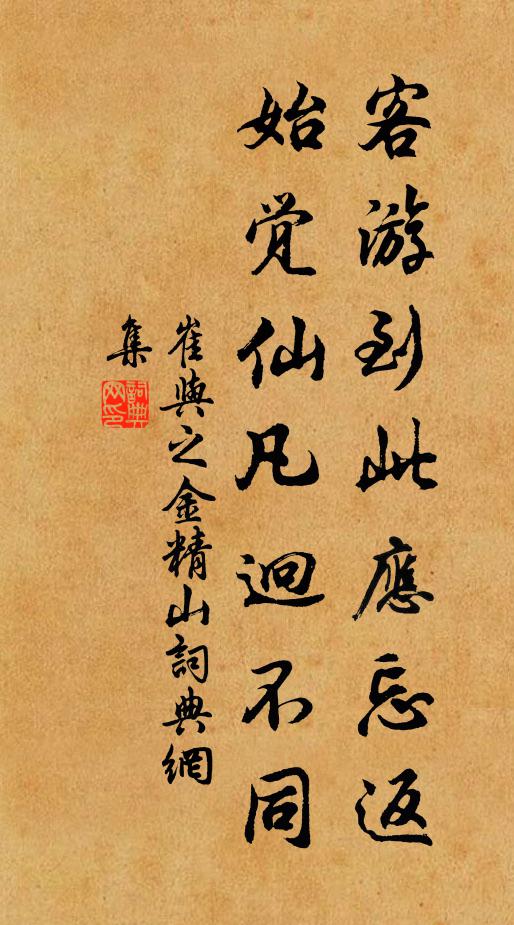 客游到此應忘返
始覺仙凡迥不同
崔與之金精山詞典網
集
詞典網印